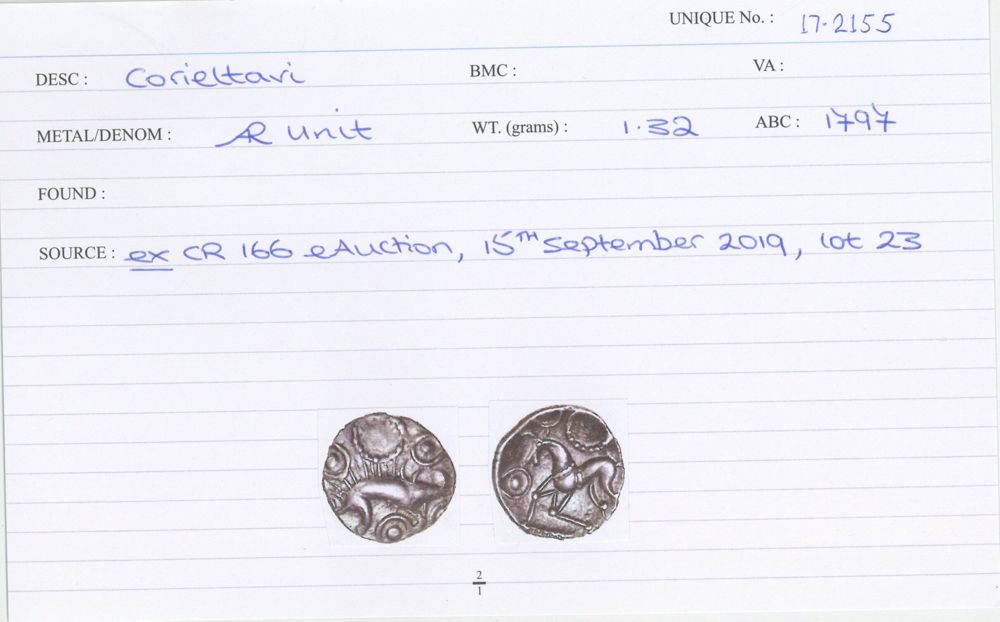 UNIQUE No. : 17-2155
DESC : Corieltavi BMC : VA :
METAL/DENOM : AR Unit WT. (grams) : 1.32 ABC : 1797
FOUND :
SOURCE : ex CR 166 eAuction, 15TH September 2019, lot 23
2
1